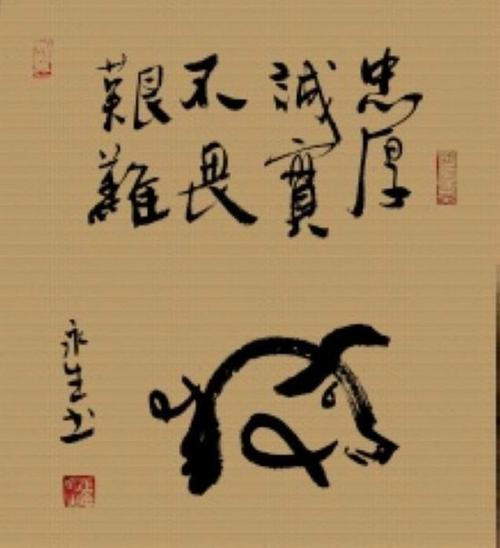 忠厚
誠實
不畏
艱難
永生书